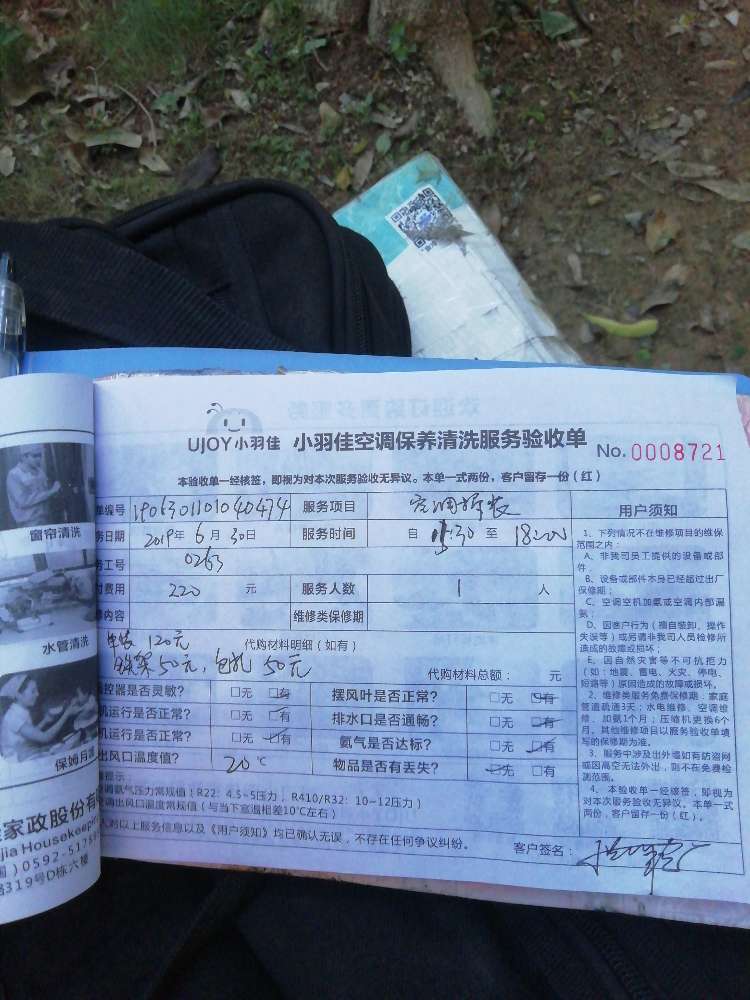 窗帘清洗
水管清洗
保姆月
家政股份有
jia Housekeeping
) 0592-517
路319号D栋六楼
UJOY小羽佳 小羽佳空调保养清洗服务验收单 No. 0008721
本验收单一经核签，即视为对本次服务验收无异议。本单一式两份，客户留存一份（红）
单编号 1906301101040474 服务项目 空调拆装
务日期 2019年 6月 30日 服务时间 自 15:30 至 18:00
务工号 0263
付费用 220 元 服务人数 1 人
内容 维修类保修期
安装 120元 代购材料明细（如有）
铁架50元，包扎 50元
代购材料总额： 元
控器是否灵敏？ 无 有 摆风叶是否正常？ 无 有
机运行是否正常？ 无 有 排水口是否通畅？ 无 有
机运行是否正常？ 无 有 氨气是否达标？ 无 有
出风口温度值？ 20 ℃ 物品是否有丢失？ 无 有
提示：
调氨气压力常规值！R22：4.5~5压力，R410/R32：10~12压力）
调出风口温度常规值（与当下室温相差10℃左右）
人对以上服务信息以及《用户须知》均已确认无误，不存在任何争议纠纷。
客户签名：
用户须知
1、下列情况不在维修项目的维保
范围之内：
A、非我司员工提供的设备或部
件；
B、设备或部件本身已经超过出厂
保修期；
C、空调空机加氨或空调内部漏
氨；
D、因客户行为（擅自装卸、操作
失误等）或另请非我司人员检修所
造成的故障或损坏；
E、因自然灾害等不可抗拒力
（如：地震、蓄电、火灾、停电、
短路等）原因造成的故障或损坏。
2、维修类服务免费保修期：家庭
管道疏通3天；水电维修、空调维
修、加氨1个月；压缩机更换6个
月。其他维修项目以服务验收单填
写的保修期为准。
3、服务中涉及出外墙如有防盗网
或因高空无法外出，则不在免费检
测范围。
4、本验收单一经核签，即视为
对本次服务验收无异议。本单一式
两份，客户留存一份（红）。